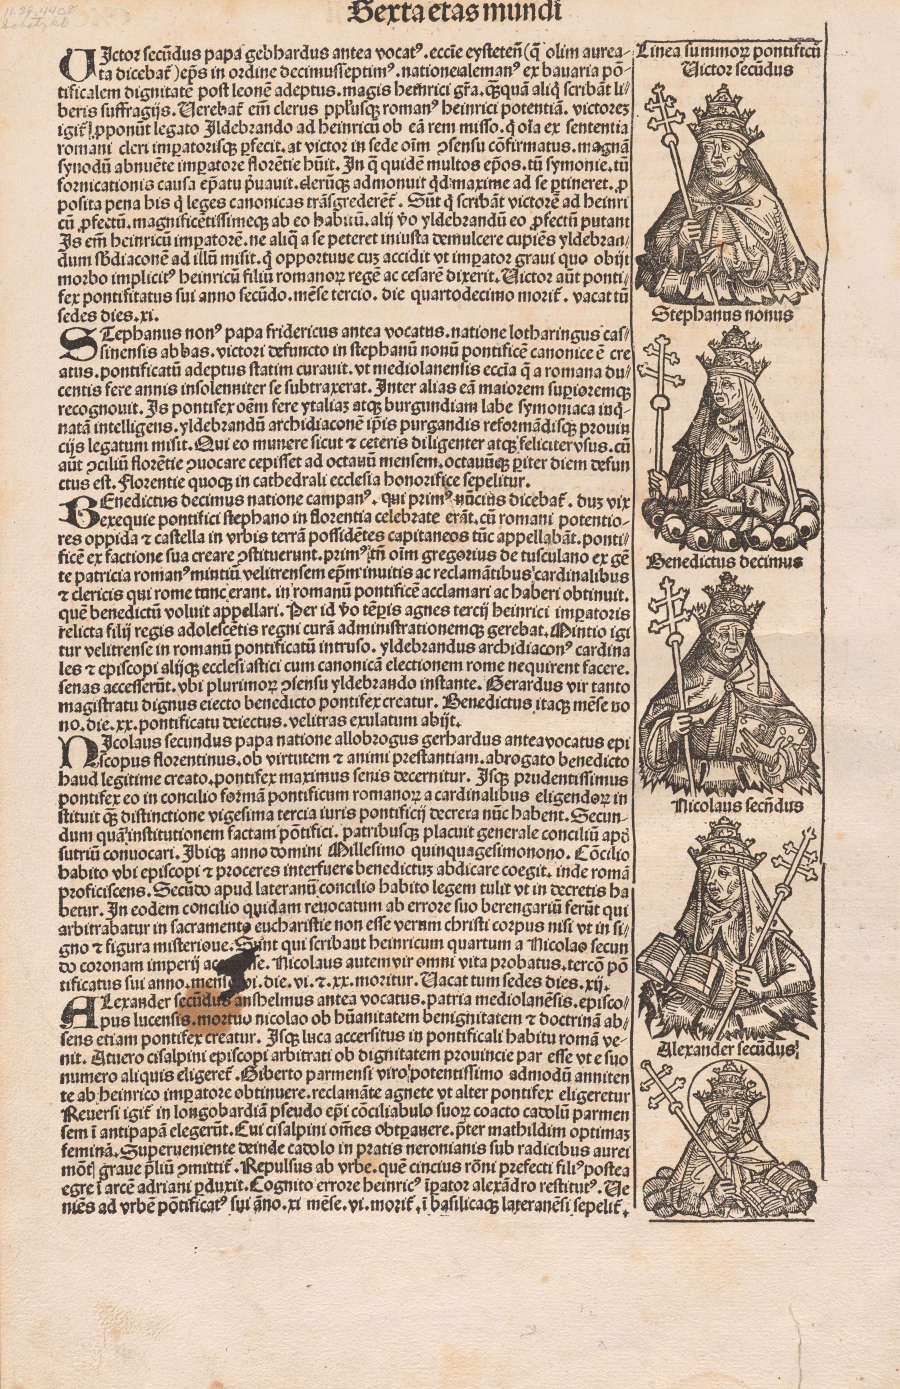 Sexta etas mundi
Uictor secūdus papa gebhardus antea vocatꝰ. eccīe eysteteñ (q̄ olim aurea-
ta dicebat᷑) ep̄s in ordine decimusseptimꝰ. natione alemanꝰ ex bauaria pō-
tificalem dignitatē post leonē adeptus. magis heinrici gr̄a. qꝫquā aliq̄ scribāt li-
beris suffragijs. Uerebat᷑ em̄ clerus pp̄lusqꝫ romanꝰ heinrici potentiā. victorez
igit᷑ ꝓponūt legato Jldebrando ad heinricū ob eā rem misso. q̄ oīa ex sententia
romani cleri imꝑatorisqꝫ ꝑfecit. at victor in sede oīm ꝯsensu cōfirmatus. magnā
synodū abnuēte imꝑatore florētie hūit. Jn q̄ quidē multos ep̄os. tū symonie. tū
fornicationis causa ep̄atu p̄uauit. clerūqꝫ admonuit qd̄ maxime ad se ꝑtineret. ꝓ
posita pena his q̄ leges canonicas trās̄grederēt᷑. Sūt q̄ scribāt victorē ad heinri
cū ꝓfectū. magnificētissimeqꝫ ab eo habitū. alij v̄o yldebrandū eo ꝓfectū putant
Js em̄ heinricū imꝑatorē. ne aliq̄ a se peteret iniusta demulcere cupiēs yldebran-
dum sb̄diaconē ad illū misit. q̄ opportune cuꝫ accidit vt imꝑator graui quo obijt
morbo implicitꝰ heinricū filiū romanorꝝ regē ac cesarē dixerit. Uictor aūt ponti-
fex pontificatus sui anno secūdo. mēse tercio. die quartodecimo morit᷑. vacat tū
sedes dies. xi.
Stephanus nonꝰ papa fridericus antea vocatus. natione lotharingus cas-
sinensis abbas. victori defuncto in stephanū nonū pontificē canonice ē cre
atus. pontificatū adeptus statim curauit. vt mediolanensis eccīa q̄ a romana du-
centis fere annis insolenniter se subtraxerat. Jnter alias eā maiorem suꝑioremqꝫ
recognouit. Js pontifex oēm fere ytaliaꝫ atqꝫ burgundiam labe symoniaca inq̄-
natā intelligens. yldebrandū archidiaconē ip̄is purgandis reformādisqꝫ prouin
cijs legatum misit. Qui eo munere sicut ⁊ ceteris diligenter atqꝫ feliciter vsus. cū
aūt ꝯciliū florētie ꝯuocare cepisset ad octauū mensem. octauūqꝫ ꝑiter diem defun
ctus est. Florentie quoqꝫ in cathedrali ecclesia honorifice sepelitur.
Benedictus decimus natione campanꝰ. qui primꝰ mīciꝰ dicebat᷑. duꝫ vix
exequie pontifici stephano in florentia celebrate erāt. cū romani potentio-
res oppida ⁊ castella in vrbis terrā possidētes capitaneos tūc appellabāt. ponti-
ficē ex factione sua creare ꝯstituerunt. primꝰ tn̄ oīm gregorius de tusculano ex gē
te patricia romanꝰ mintiū velitrensem ep̄m inuitis ac reclamātibus cardinalibus
⁊ clericis qui rome tunc erant. in romanū pontificē acclamari ac haberi obtinuit.
quē benedictū voluit appellari. Per id v̄o tēpꝭis agnes tercij heinrici imꝑatoris
relicta filij regis adolescētis regni curā administrationemqꝫ gerebat. Mintio igi
tur velitrense in romanū pontificatū intruso. yldebrandus archidiaconꝰ cardina
les ⁊ episcopi alijqꝫ ecclesiastici cum canonicā electionem rome nequirent facere.
senas accesserūt. vbi plurimorꝝ ꝯsensu yldebrando instante. Gerardus vir tanto
magistratu dignus eiecto benedicto pontifex creatur. Benedictus itaqꝫ mēse no
no. die. xx. pontificatu deiectus. velitras exulatum abijt.
Nicolaus secundus papa natione allobrogus gerhardus antea vocatus epi
scopus florentinus. ob virtutem ⁊ animi prestantiam. abrogato benedicto
haud legitime creato. pontifex maximus senis decernitur. Jsqꝫ prudentissimus
pontifex eo in concilio formā pontificum romanorꝝ a cardinalibus eligendorꝝ in
stituit qꝫ distinctione vigesima tercia iuris pontificij decreta nūc habent. Secun-
dum quā institutionem factam pōtifici. patribusqꝫ placuit generale conciliū apd̄
sutriū conuocari. Jbiqꝫ anno domini Millesimo quinquagesimonono. Cōcilio
habito vbi episcopi ⁊ proceres interfuere benedictuꝫ abdicare coegit. inde romā
proficiscens. Secūdo apud lateranū concilio habito legem tulit vt in decretis ha
betur. Jn eodem concilio quidam reuocatum ab errore suo berengariū ferūt qui
arbitrabatur in sacramento eucharistie non esse verum christi corpus nisi vt in si-
gno ⁊ figura misterioue. Sunt qui scribant heinricum quartum a Nicolao secun
do coronam imperij Nicolaus autem vir omni vita probatus. tercoꝫ pō
tificatus sui anno. mense vi. die. vi. ⁊. xx. moritur. Uacat tum sedes dies. xij.
Alexander secūdus anshelmus antea vocatus. patria mediolanēsis. episco-
pus lucensis. mortuo nicolao ob hūanitatem benignitatem ⁊ doctrinā ab-
sens etiam pontifex creatur. Jsqꝫ luca accersitus in pontificali habitu romā ve-
nit. At vero cisalpini episcopi arbitrati ob dignitatem prouincie par esse vt e suo
numero aliquis eligeret᷑. Giberto parmensi viro potentissimo admodū anniten
te ab heinrico imꝑatore obtinuere. reclamāte agnete vt alter pontifex eligeretur
Reuersi igit᷑ in longobardiā pseudo ep̄i cōciliabulo suorꝝ coacto cadolū parmen
sem ī antipapā elegerūt. Cui cisalpini om̄es obtꝑauere. p̄ter mathildim optimaꝫ
feminā. Superueniente deinde cadolo in pratis neronianis sub radicibus aurei
mōt᷑ graue p̄liū ꝯmittit᷑. Repulsus ab vrbe. quē cincius rōni prefecti filiꝰ postea
egre ī arcē adriani ꝑduxit. Cognito errore heinricꝰ īpator alexādro restitutꝰ. Ue
niēs ad vrbē pōtificatꝰ sui āno. xi mēse. vi. morit᷑. ī basilicaqꝫ lateranēsi sepelit᷑.
Linea summorꝝ pontificū
Uictor secūdus
Stephanus nonus
Benedictus decimus
Nicolaus secūdus
Alexander secūdus